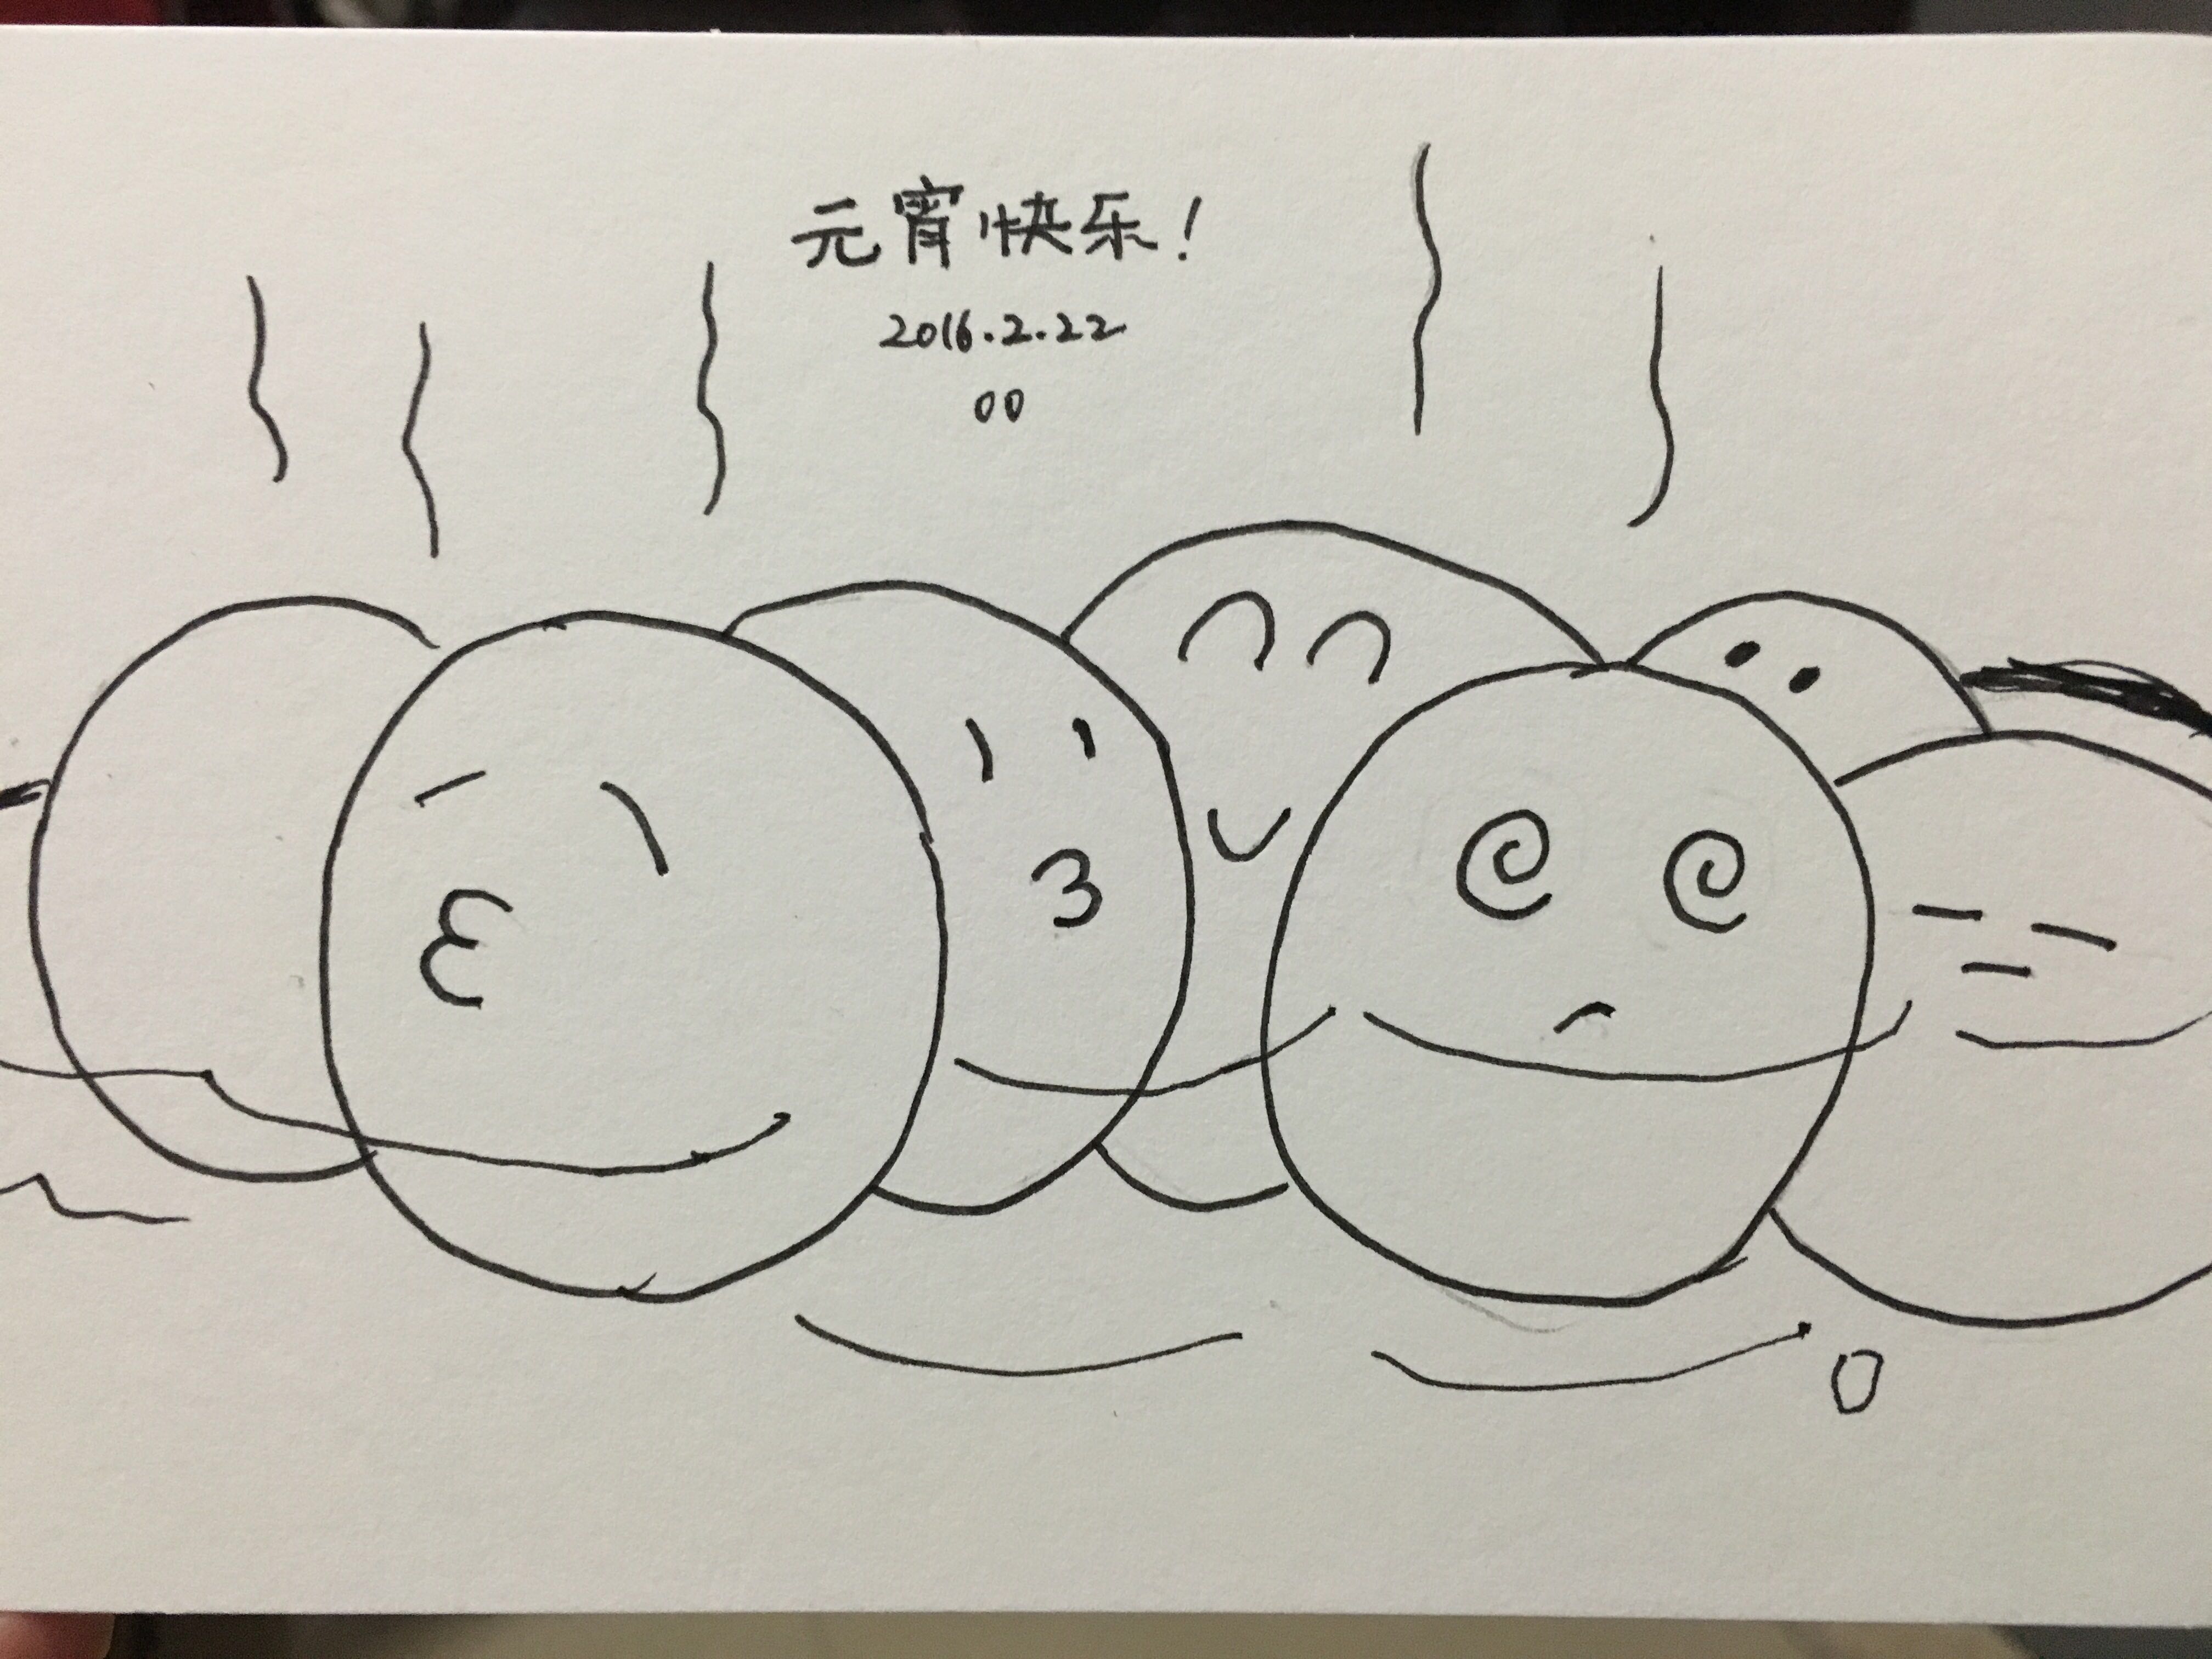 元宵快乐!
2016.2.22
00